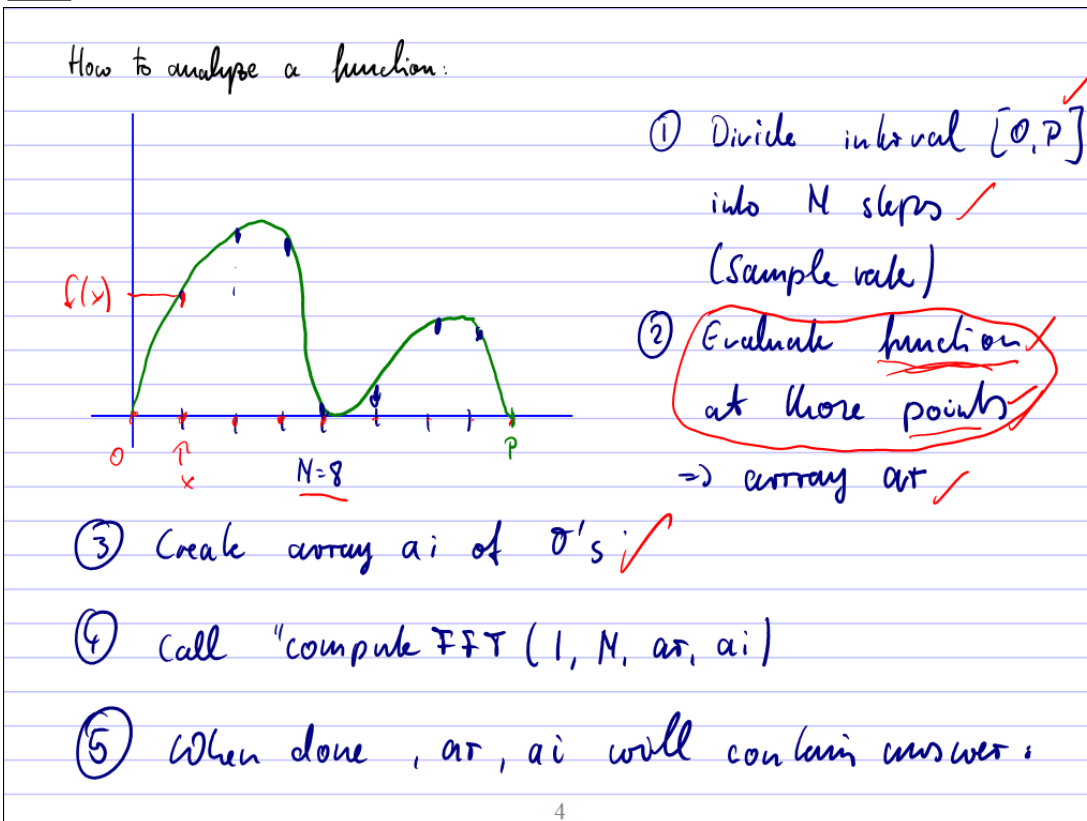 How to analyze a function:
① Divide interval [0,P]
into N steps
(Sample rate)
f(x)
② Evaluate function
at those points
0
x
N=8
P
=> array ar
③ Create array ai of 0's
④ Call "compute FFT (1, N, ar, ai)
⑤ When done, ar, ai will contain answer:
4